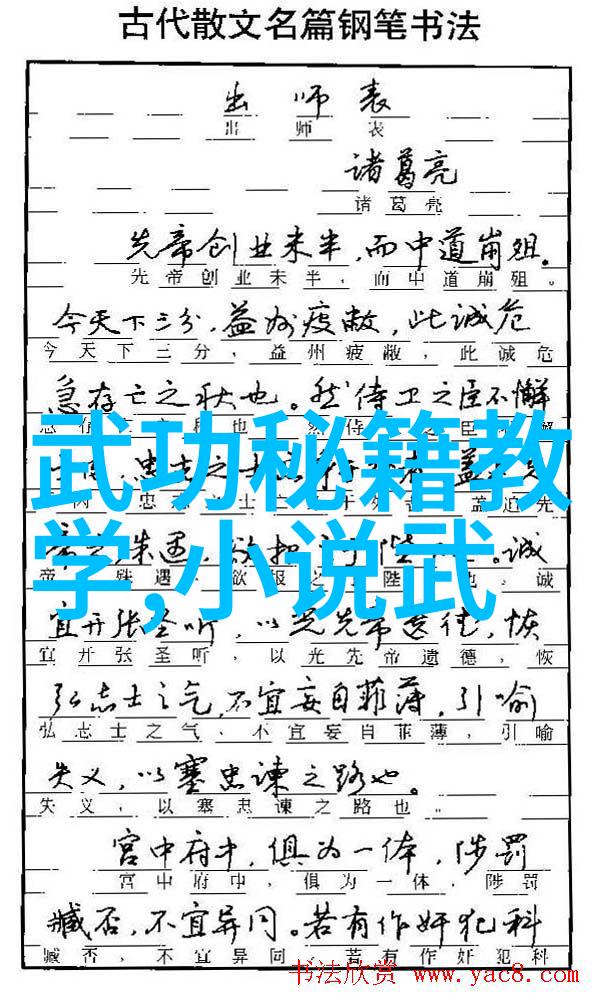 古代散文名篇钢笔书法
出师表
出师表
诸葛亮
诸葛亮
先帝创业未半,而中道崩殂。
先帝创业未半,而中道崩殂。
今天下三分,益州疲敝,此诚危
今天下三分,益州疲敝,此诚危
急存亡之秋也。然侍卫之臣不懈
武功秘籍教
忠志之士
内 忠 盖追先
学,小说武
帝 殊遇,欲报之 陛 。诚
帝 殊遇,欲报之 陛 也,诚
宜开张圣听,以光先帝遗德,恢
宜开张圣听,以光先帝遗德,恢
弘志士之气,不宜妄自菲薄,引喻
弘志士之气,不宜妄自菲薄,引喻
失义,以塞忠谏之路也。
失义,以塞忠谏之路也。
宫中府中,俱为一体,陟罚
宫中府中,俱为一体,陟罚
臧否,不宜异同。若有作奸犯科
臧否,不宜异同。若有作奸犯科
书法欣赏 www.yac8.com